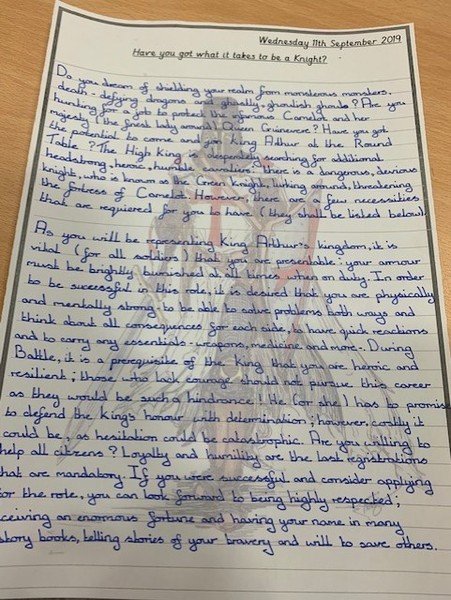 Wednesday 11th September 2019
Have you got what it takes to be a Knight?
Do you dream of shielding your realm from monsterous monsters,
death-defying dragons and ghastly-ghoulish ghouls? Are you
hunting for a job to protect the infamous Camelot and her
majesty (the finest lady around) Queen Guinevere? Have you got
the potential to come and join King Arthur at the Round
Table? The High King is desperately searching for additional
headstrong, heroic, humble cavaliers: there is a dangerous, devious
knight, who is known as the Green Knight, lurking around, threatening
the fortress of Camelot. However, there are a few necessities
that are requiered for you to have (they shall be listed below).
As you will be representing King Arthur's kingdom, it is
vital (for all soldiers) that you are presentable: your armour
must be brightly burnished at all times when on duty. In order
to be sucessful in this role, it is desired that you are physically
and mentally strong to be able to solve problems both ways and
think about all consequences for each side, to have quick reactions
and to carry any essentials - weapons, medicine and more -. During
Battle, it is a prerequisite of the King that you are heroic and
resilient; those who lack courage should not pursue this career
as they would be such a hindrance. He (or she) has to promise
to defend the King's honour with determination; however, costly it
could be, as hesitation could be catastrophic. Are you willing to
help all citizens? Loyalty and humility are the last registrations
that are mandatory. If you were successful and consider applying
for the role, you can look forward to being highly respected;
receiving an enormous fortune and having your name in many
story books, telling stories of your bravery and will to save others.